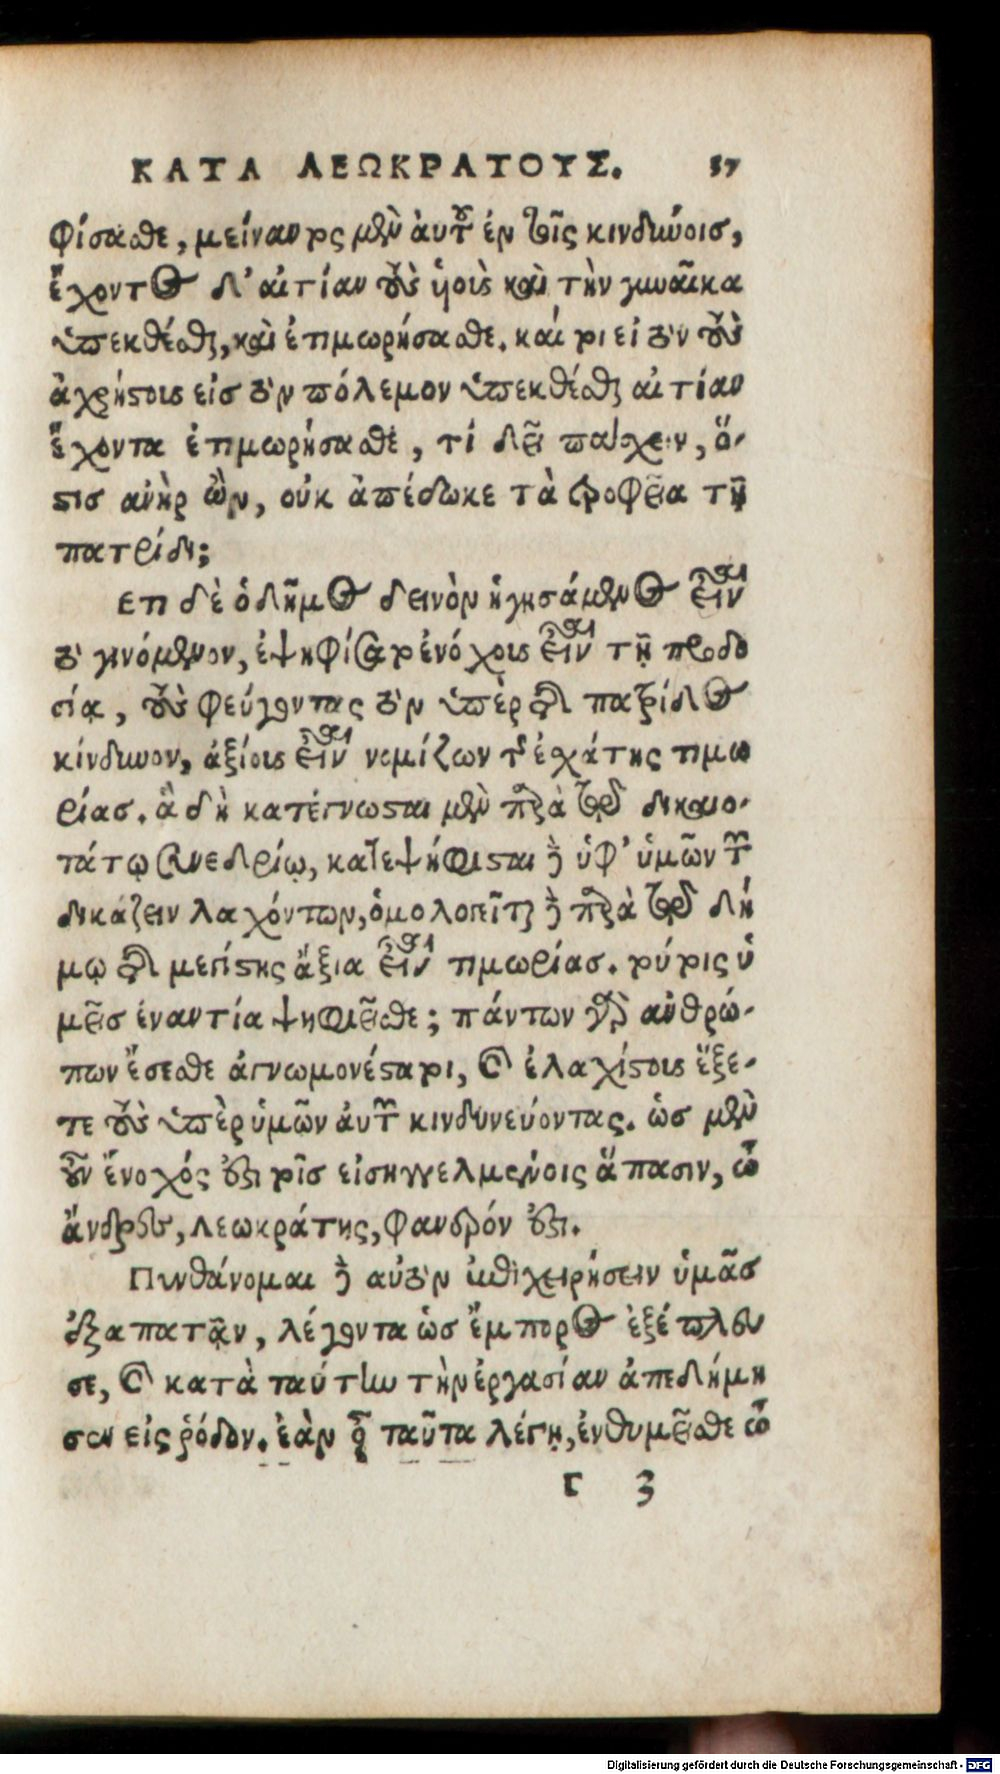 ΚΑΤΑ ΛΕΩΚΡΑΤΟΥΣ. 37
φίσασθε, μείναντος μὲν ἀυτοῦ ἐν τοῖς κινδύνοις,
ἔχοντος δ' αἰτίαν τοὺς ἡοὺς καὶ τὴν γυναῖκα
ὑπεκθέσθαι, καὶ ἐτιμωρήσασθε. καίτοι εἰ τὸν τοὺς
ἀχρήστους εἰς τὸν πόλεμον ὑπεκθέσθαι αἰτίαν
ἔχοντα ἐτιμωρήσασθε, τί δεῖ πάσχειν, ὅ-
στις ἀνὴρ ὢν, οὐκ ἀπέδωκε τὰ τροφεῖα τῇ
πατρίδι;
Ετι δὲ ὁ δῆμος δεινὸν ἡγησάμενος εἶναι
τὸ γινόμενον, ἐψηφίσατο ἐνόχους εἶναι τῇ προδο
σίᾳ, τοὺς φεύγοντας τὸν ὑπὲρ τῆς πατρίδος
κίνδυνον, ἀξίους εἶναι νομίζων τῆς ἐχάτης τιμω
ρίας. ἃ δὴ κατέγνωσται μὲν παρὰ τῷ δικαιο-
τάτῳ συνεδρίῳ, κατεψήφισται δὲ ὑφ' ὑμῶν τῶν
δικάζειν λαχόντων, ὁμολογεῖται δὲ παρὰ τῷ δή
μῳ τῆς μεγίστης ἄξια εἶναι τιμωρίας. τούτοις ὑ
μεῖς ἐναντία ψηφιεῖσθε; πάντων γὰρ ἀνθρώ-
πων ἔσεσθε ἀγνωμονέστατοι, καὶ ἐλαχίστους ἕξε-
τε τοὺς ὑπὲρ ὑμῶν ἀυτῶν κινδυνεύοντας. ὡς μὲν
οὖν ἔνοχός ἐστι τοῖς εἰσηγγελμένοις ἅπασιν, ὦ
ἄνδρες, Λεωκράτης, φανερόν ἐστι.
Πυνθάνομαι δὲ αὐτὸν ἐπιχειρήσειν ὑμᾶς
ἐξαπατᾷν, λέγοντα ὡς ἔμπορος ἐξέπλευ
σε, καὶ κατὰ ταύτην τὴν ἐργασίαν ἀπεδήμη
σεν εἰς ῥόδον. ἐὰν οὖν ταῦτα λέγῃ, ἐνθυμεῖσθε ὦ
Γ 3
Digitalisierung gefördert durch die Deutsche Forschungsgemeinschaft - DFG